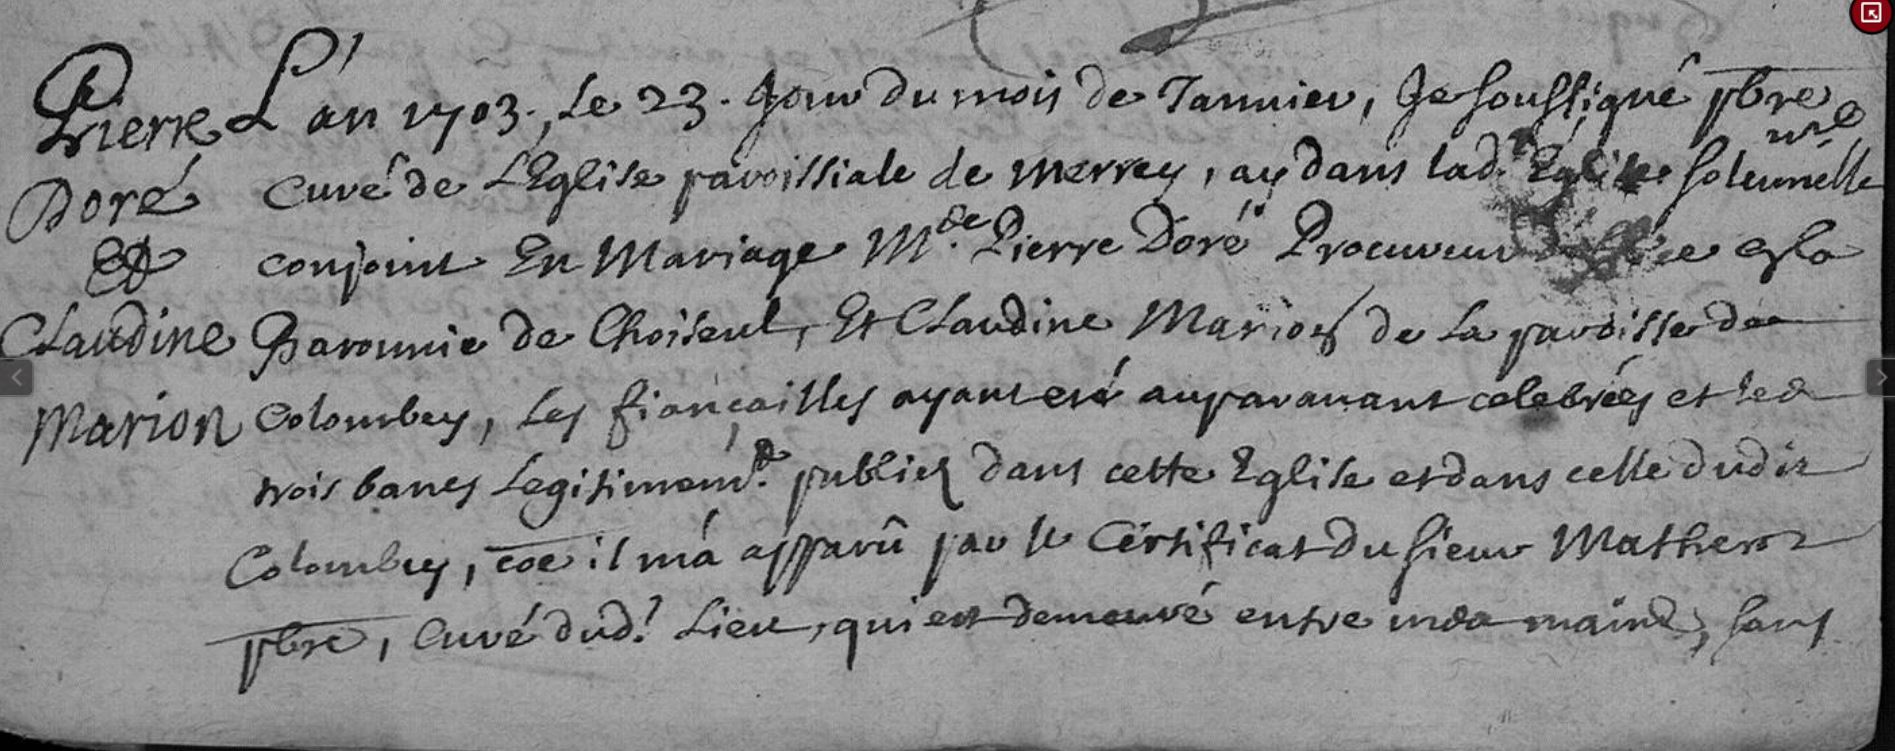 Pierre
Doré
Et
Claudine
Marion
L'an 1703., Le 23. Jour du mois de Januier, Je soussigné pbre
Curé de L'Eglise paroissiale de Merrey, ay dans lad.^e Eglise solemnelle^mt
conjoint En Mariage M.^e Pierre Doré Procureur es la
Baronnie de Choiseul, Et Claudine Marion de La paroisse de
Colombey, Les fiançailles ayant eté auparauant celebrées et les
trois bancs Legitimem.^t publiez dans cette Eglise et dans celle dudit
Colombey, coe il m'a apparû par le Certificat du sieur Matherot
pbre, Curé dud.^t Lieu, qui est demeuré entre mes mains, sans